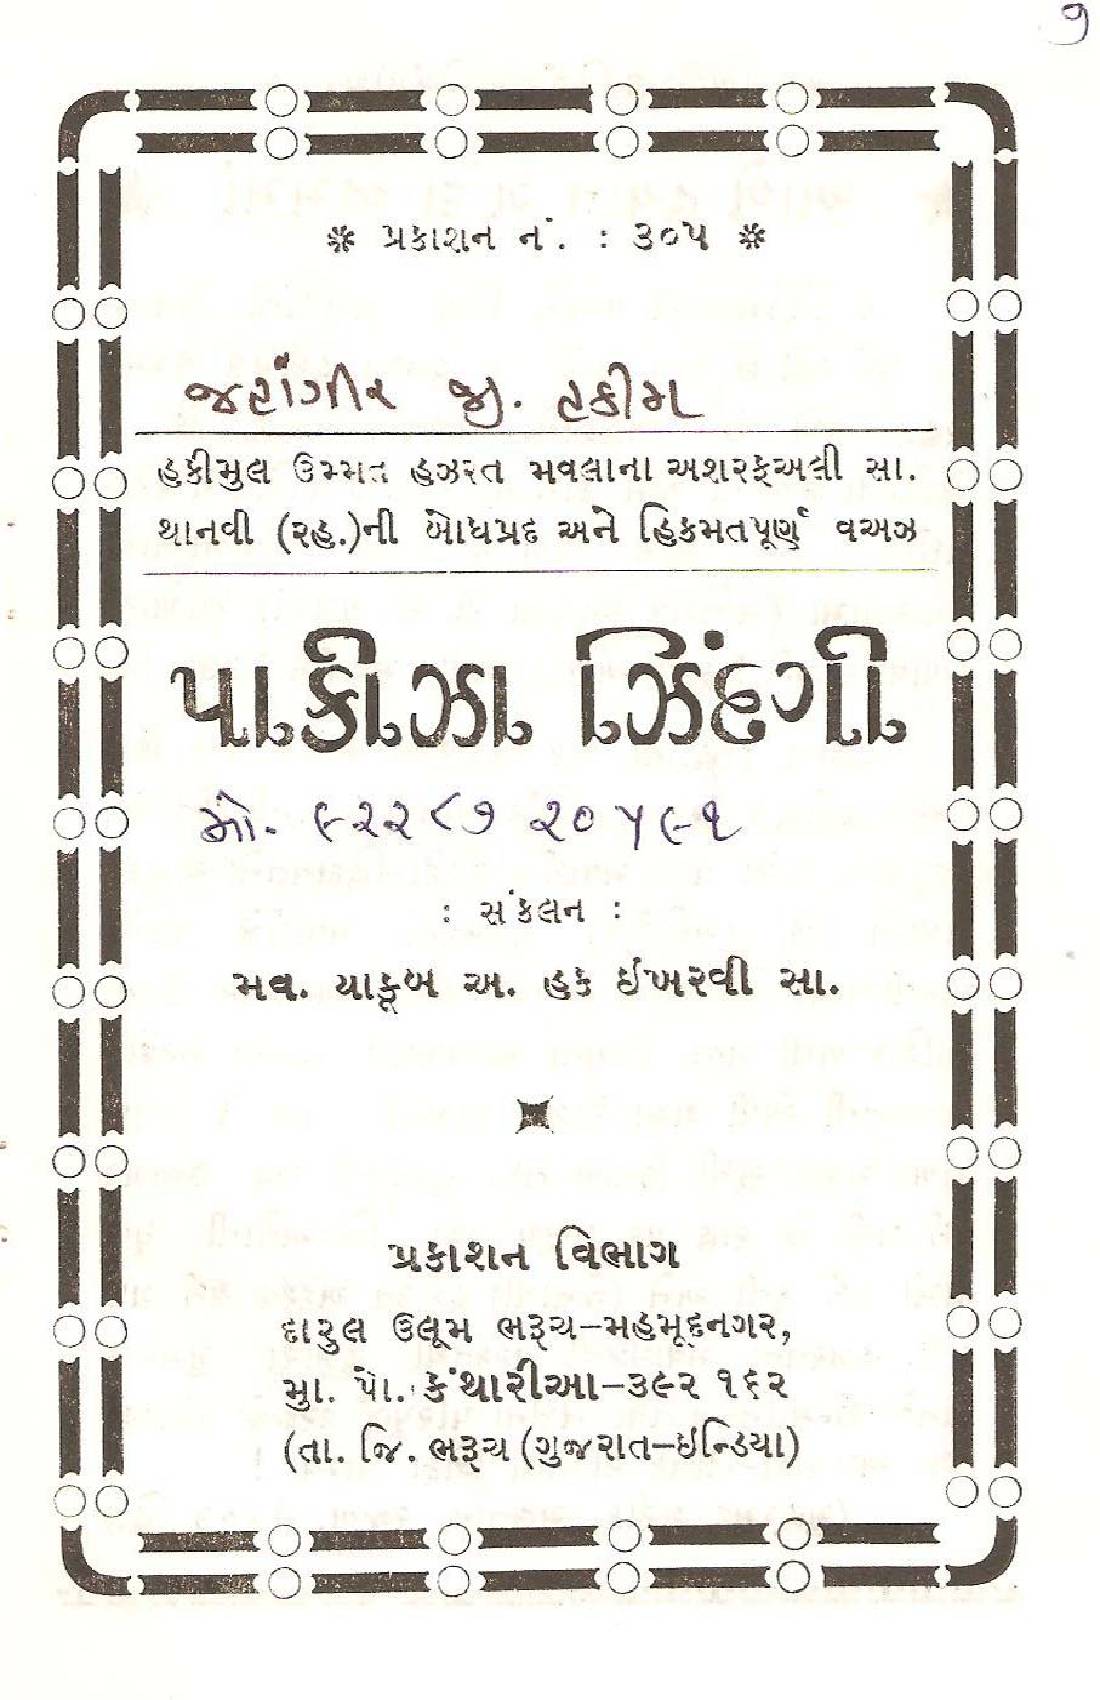 ૭
❊ પ્રકાશન નં. : ૩૦૫ ❊
જહાંગીર જી. હકીમ
હકીમુલ ઉમ્મત હઝરત મવલાના અશરફઅલી સા.
થાનવી (રહ.)ની બોધપ્રદ અને હિકમતપૂર્ણ વઅઝ
પાકીઝા ઝિંદગી
મો. ૯૨૨૮૭ ૨૦૫૯૧
: સંકલન :
મવ. યાકૂબ અ. હક ઈખરવી સા.
પ્રકાશન વિભાગ
દારુલ ઉલૂમ ભરૂચ–મહમૂદનગર,
મુ. પો. કંથારીઆ–૩૯૨ ૧૬૨
(તા. જિ. ભરૂચ (ગુજરાત–ઇન્ડિયા)